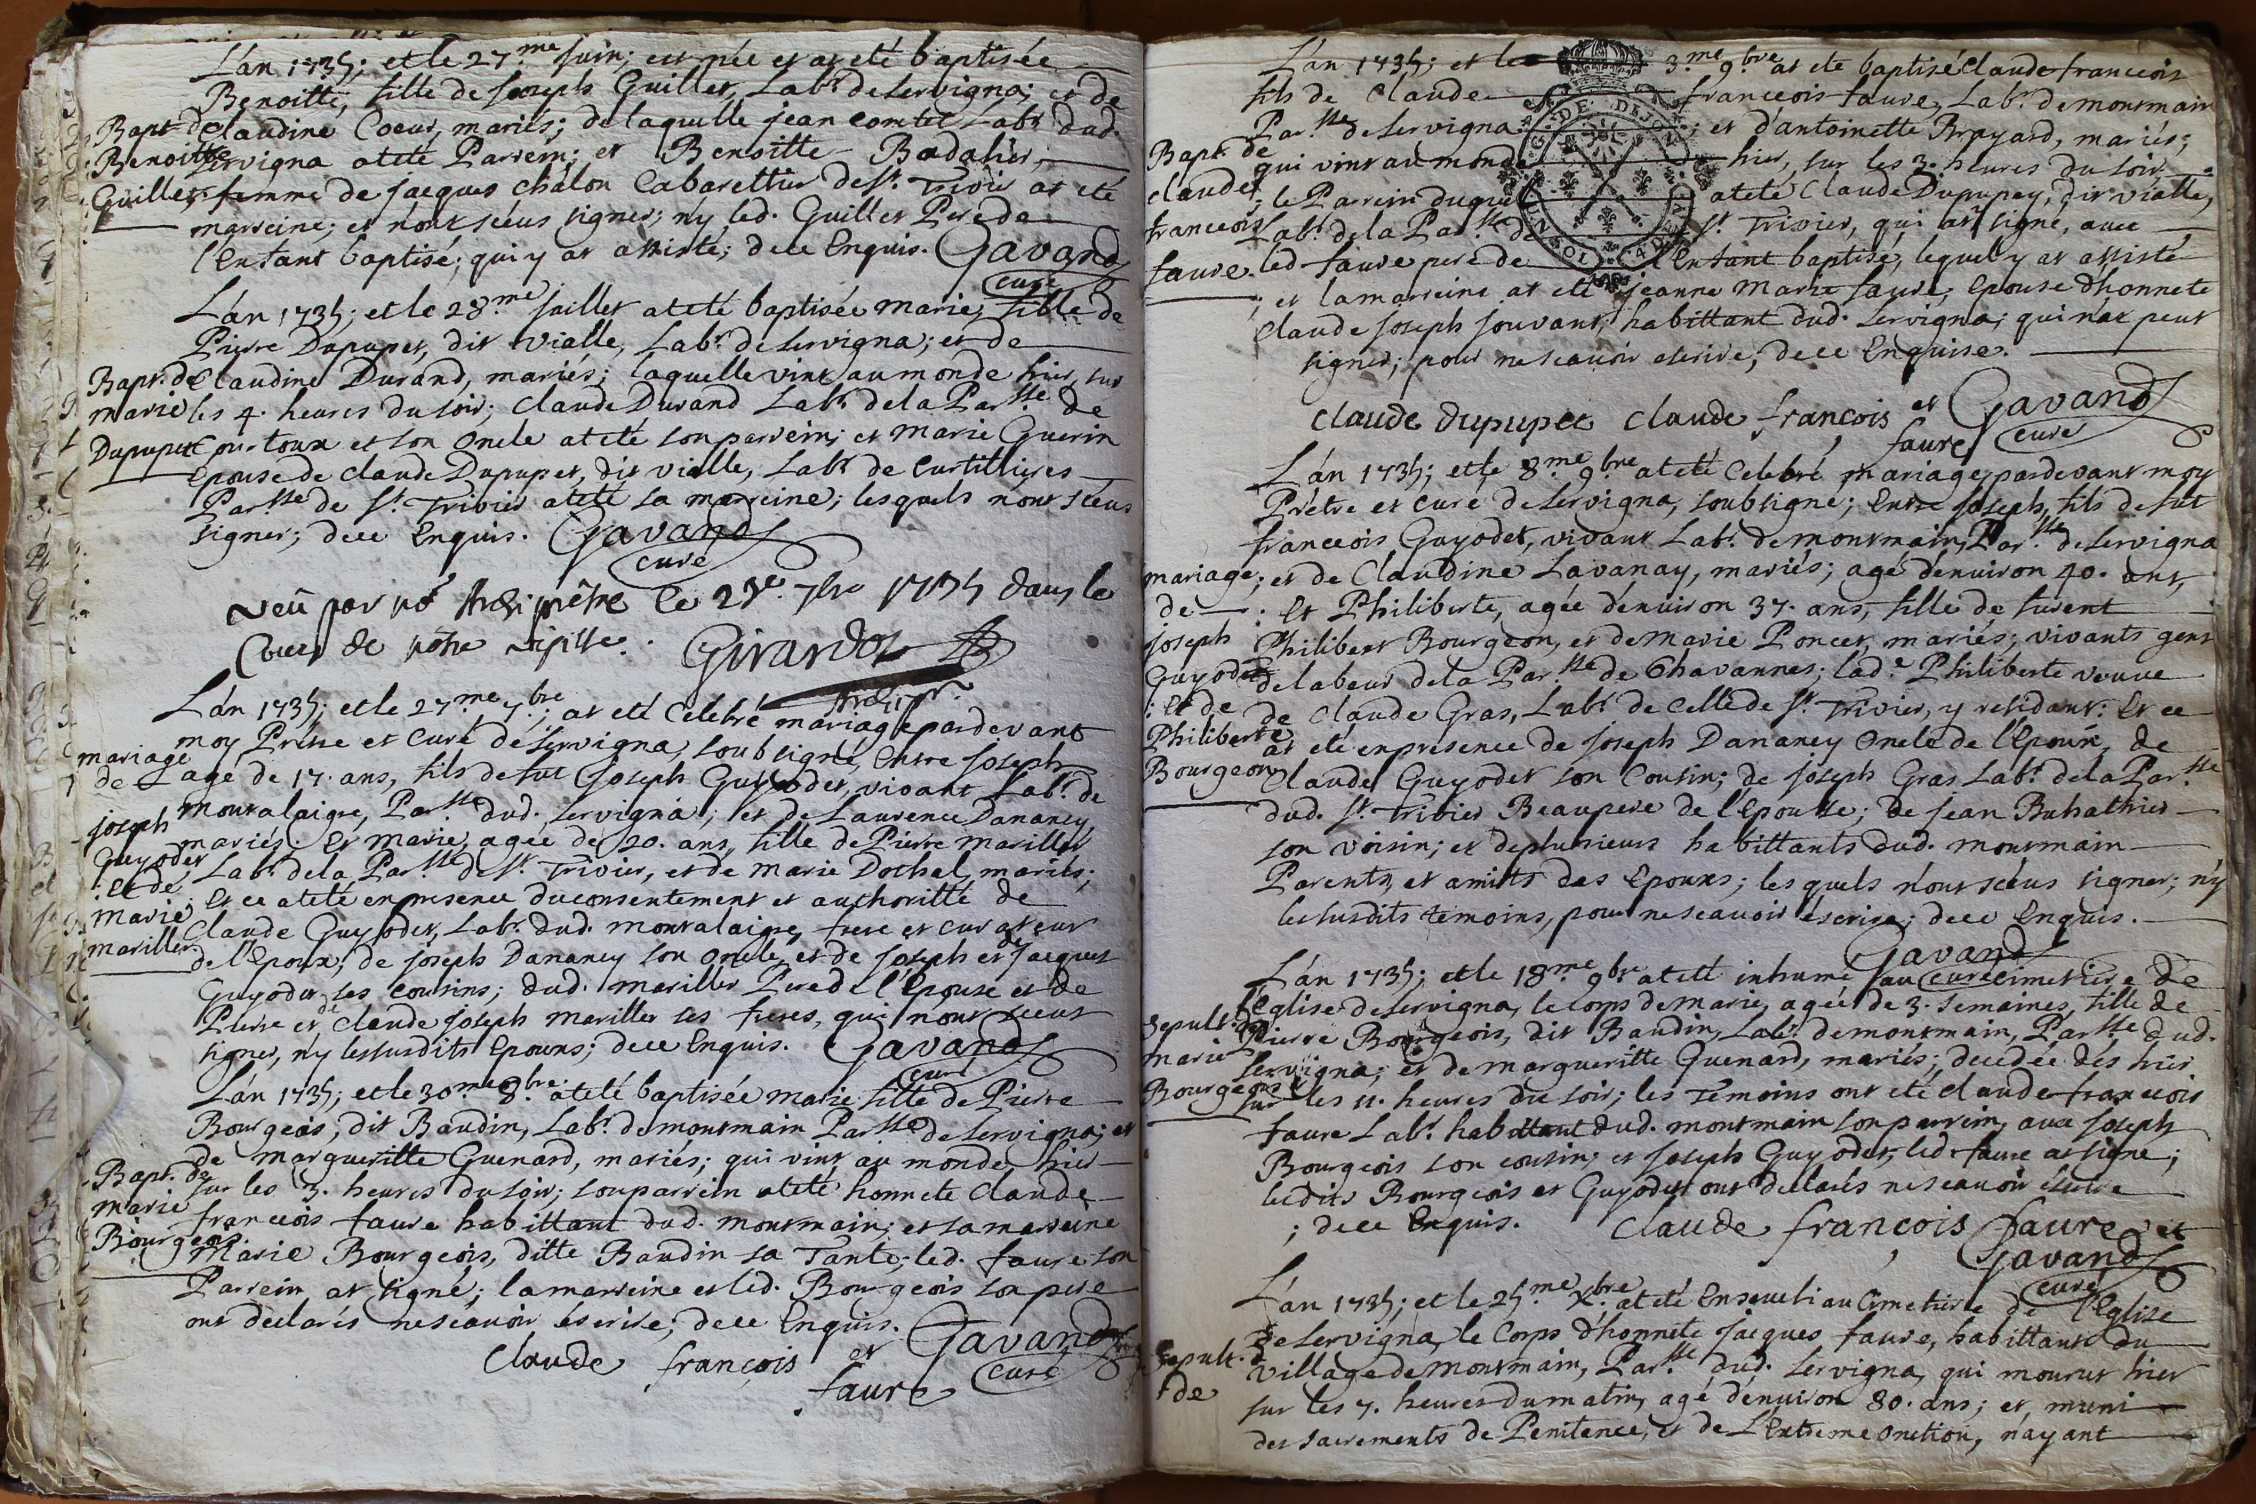 L'an 1735; et le 27.me Juin; est née et at eté baptisée
Benoitte, fille de Joseph Guillet, Lab.r de Servigna; et de
Bapt. de Claudine Coeur, mariés; de laquelle jean comtet Lab.r dud.
Benoitte Servigna ateté Parrein; et Benoitte Badalier,
Guillet. femme de Jacques châlon Cabarettier de St. Trivier at eté
marreine; et n'ont sceus signer; n'y led. Guillet Pere de
l'Enfant baptisé; qui y at assisté; de ce Enquis. Gavand
curé
L'an 1735; et le 28.me juillet ateté baptisée marie, fille de
Pierre Dupupet, dit vialle, Lab.r de Servigna; et de
Bapt. de Claudine Durand, mariés; laquelle vint au monde hier, sur
marie les 4. heures du soir; Claude Durand Lab.r de la Par.sse de
Dupupet Courtoux et son Oncle ateté son parrein; et Marie Guerin
Epouse de Claude Dupupet, dit vialle, Lab.r de Curtillieres
Par.sse de St. Trivier ateté sa marreine; lesquels n'ont sceus
signer; de ce Enquis. Gavand
curé
Veü par nō Archiprêtre le 7bre 1735 dans le
Cours de notre visitte. Girardot
Archipr.
L'an 1735; et le 27.me 7.bre; at eté Celebré mariage pardevant
moy Prêtre et Curé de Servigna, soubsigné, Entre Joseph
mariage
de agé de 17. ans, fils de fut Joseph Guyodet, vivant Lab.r de
joseph montalaigre, Par.sse dud. Servigna; et de Laurence Dananey
Guyodet mariés. Et Marie, agée de 20. ans, fille de Pierre Mariller
: Et de Lab.r de la Par.sse de St. Trivier, et de Marie Dothal, mariés;
marie Et ce ateté en presence du consentement et authoritté de
mariller. Claude Guyodet, Lab.r dud. montalaigre, frere et curateur
de l'Epoux; de Joseph Dananey son Oncle, et de Joseph et de Jacques
Guyodet ses cousins; dud. mariller Pere de l'Epouse et de
Pierre et de Claude Joseph mariller ses freres, qui n'ont sceus
signer, n'y les susdits Epoux; de ce Enquis. Gavand
curé
L'an 1735; et le 30.me 8.bre. ateté baptisée marie fille de Pierre
Bourgeois, dit Baudin, Lab.r de montmain Par.sse de Servigna; et
de margueritte Guenard, mariés; qui vint au monde, hier
Bapt. de sur les 3. heures du soir; son parrein ateté honnete Claude
marie francois faure habittant dud. montmain; et sa marreine
Bourgeois. Marie Bourgeois, ditte Baudin sa Tante; led. faure son
Parrein at signé; la marreine et led. Bourgeois son pere
ont declarés ne scavoir éscrire; de ce Enquis. Gavand
Claude françois et curé
faure
L'an 1735; et le 3.me 9.bre at eté baptisé Claude francois
fils de Claude francois faure, Lab.r de montmain
Par.sse de Servigna; et d'antoinette Brayard, mariés;
Bapt. de qui vint au monde hier, sur les 3. heures du soir.
claude ; le Parrein duquel ateté Claude Dupupey, dit vialle,
francois Lab.r de la Par.sse de St. Trivier, qui at signé, avec
faure. led. faure pere de l'Enfant baptisé, lequel y at assisté
G. DE DIJON
; et la marreine at eté jeanne Marie faure, Epouse d'honnete
Claude Joseph Jouvant, habittant dud. Servigna; qui n'at peut
signer; pour ne scavoir escrire; de ce Enquise.
claude dupupet claude françois et Gavand
faure curé
L'an 1735; et le 8.me 9.bre ateté Celebré mariage pardevant moy
Prêtre et curé de Servigna, soubsigné; Entre Joseph, fils de fut
francois Guyodet, vivant Lab.r de montmain, Par.sse de Servigna
mariage ; et de Claudine Lavanay, mariés; agé denviron 40. ans,
de : Et Philiberte, agée d'environ 37. ans, fille de furent
joseph Philibert Bourgeon, et de Marie Poncet, mariés; vivants gens
Guyodet de labeur de la Par.sse de Chavannes; lad.e Philiberte veuve
: Et de de Claude Gras, Lab.r de celle de St. Trivier, y residant: Et ce
Philiberte at eté en presence de Joseph Dananey Oncle de l'Epoux, de
Bourgeon Claude Guyodet son Cousin; de Joseph Gras Lab.r de la Par.sse
dud. St. Trivier Beaupere de l'Epouse; de Jean Buhathier
son voisin; et de plusieurs habittants dud. montmain
Parents, et amits des Epoux; lesquels n'ont sceus signer; n'y
les susdits temoins, pour ne scavoir éscrire; de ce Enquis.
Gavand
curé
L'an 1735; et le 18.me 9.bre ateté inhumé au cimetiere de
l'Eglise de Servigna, le corps de Marie, agée de 3. semaines, fille de
Sepult. de Pierre Bourgeois, dit Baudin, Lab.r de montmain, Par.sse dud.
marie Servigna; et de margueritte Guenard, mariés; decedée dés hier
Bourgeois sur les 11. heures du soir; les Temoins ont eté claude francois
faure Lab.r habittant dud. montmain son parrein, avec Joseph
Bourgeois son cousin; et Joseph Guyodet, led. faure at signé;
lesdits Bourgeois et Guyodet ont declarés ne scavoir éscrire
; de ce Enquis. Claude françois faure et
Gavand
curé
L'an 1735; et le 25.me X.bre at eté Enseveli au Cimetiere de l'Eglise
de Servigna, le Corps d'honnete Jacques faure, habittant du
Sepult. village de montmain, Par.sse dud. Servigna, qui mourut hier
de sur les 7. heures du matin, agé d'environ 80. ans; et muni
des sacrements de Penitence, et de L'Extreme Onction, n'ayant